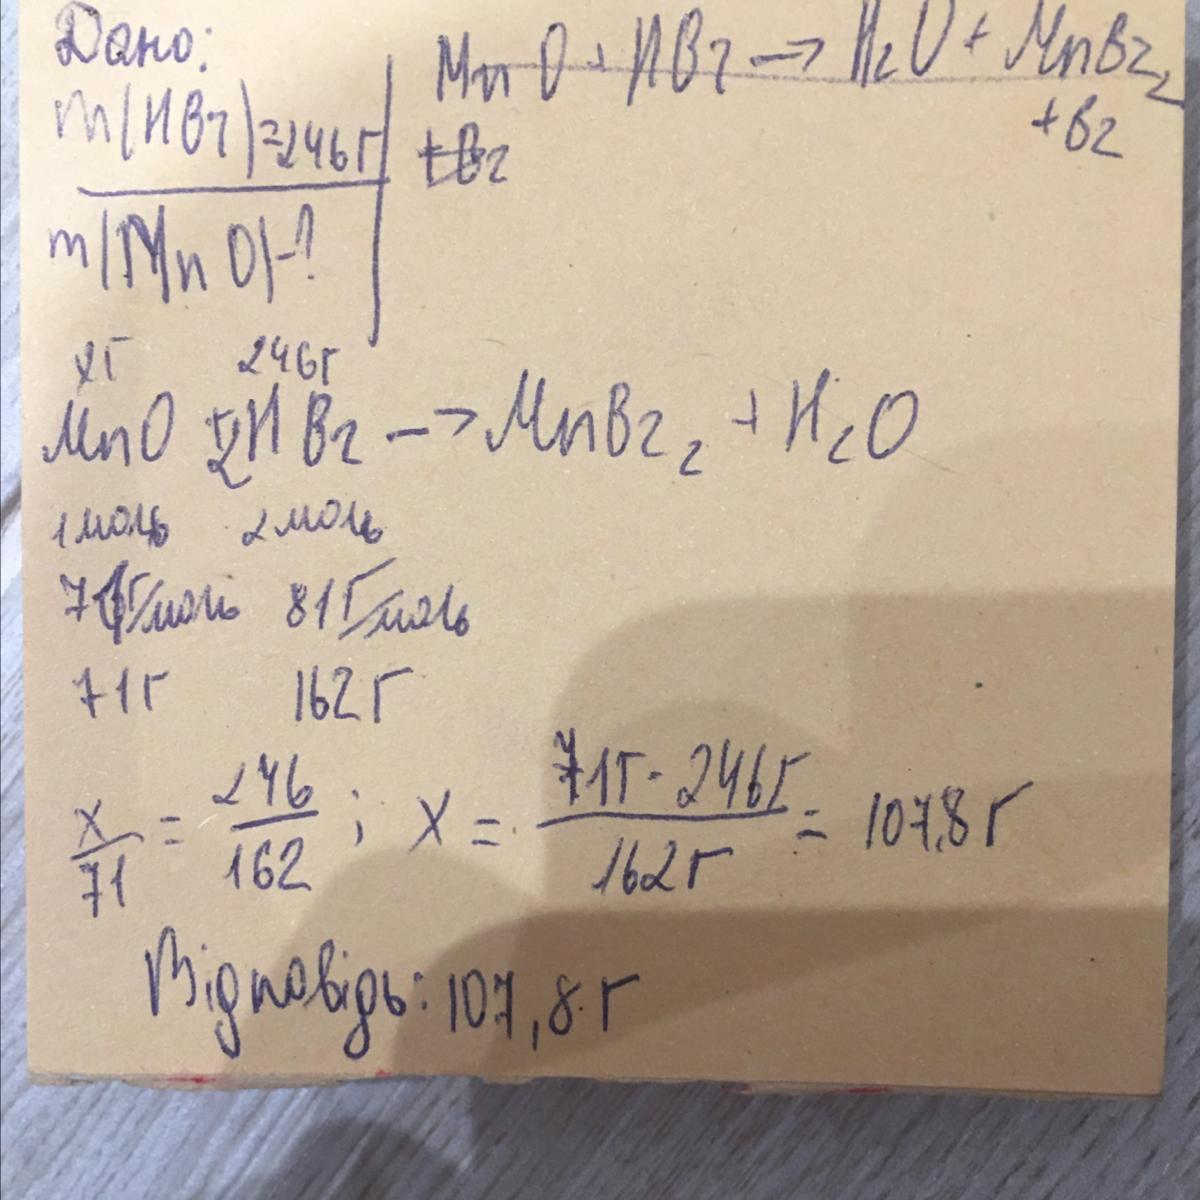 Дано:
MnO + HBr → H2O + MnBr2
+ Br
m(HBr) = 246г
+Br
m(MnO) - ?
xг 246г
MnO + 2HBr → MnBr2 + H2O
1моль 2моль
71г/моль 81г/моль
71г 162г
x/71 = 246/162 ; x = 71г · 246г / 162г = 107,8 г
Відповідь: 107,8 г